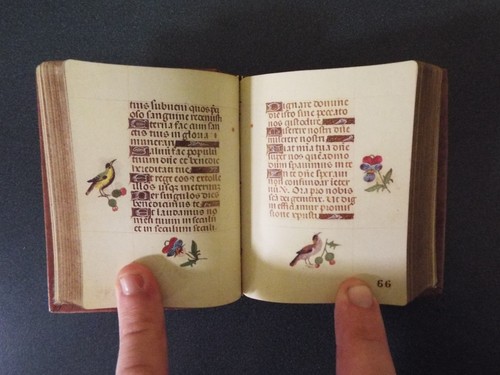 tuis subueni quos p̄ci
oso sanguine redemisti
Eterna fac cum san
ctis tuis in gloria
munerari
Saluū fac populū
tuum dn̄e et benedic
reditati tue
Et rege eos et extolle
illos usq; in eternū
Per singulos dies
benedicimus te
Et laudamus no
men tuum in seculū
et in seculum seculi
Dignare domine
die isto sine peccato
nos custodire
Miserere nostri dn̄e
miserere nostri
Fiat mīa tua dn̄e
super nos quēadmo
dum sperauimus in te
In te dn̄e speraui
non confundar in eter
nū. V. Ora pro nobis
sca dei genitrix. Ut dig
ni efficiamur promis
sione xpristi
66